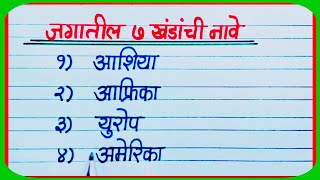 जगातील ७ खंडांची नावे
१) आशिया
२) आफ्रिका
३) युरोप
४) अमेरिका